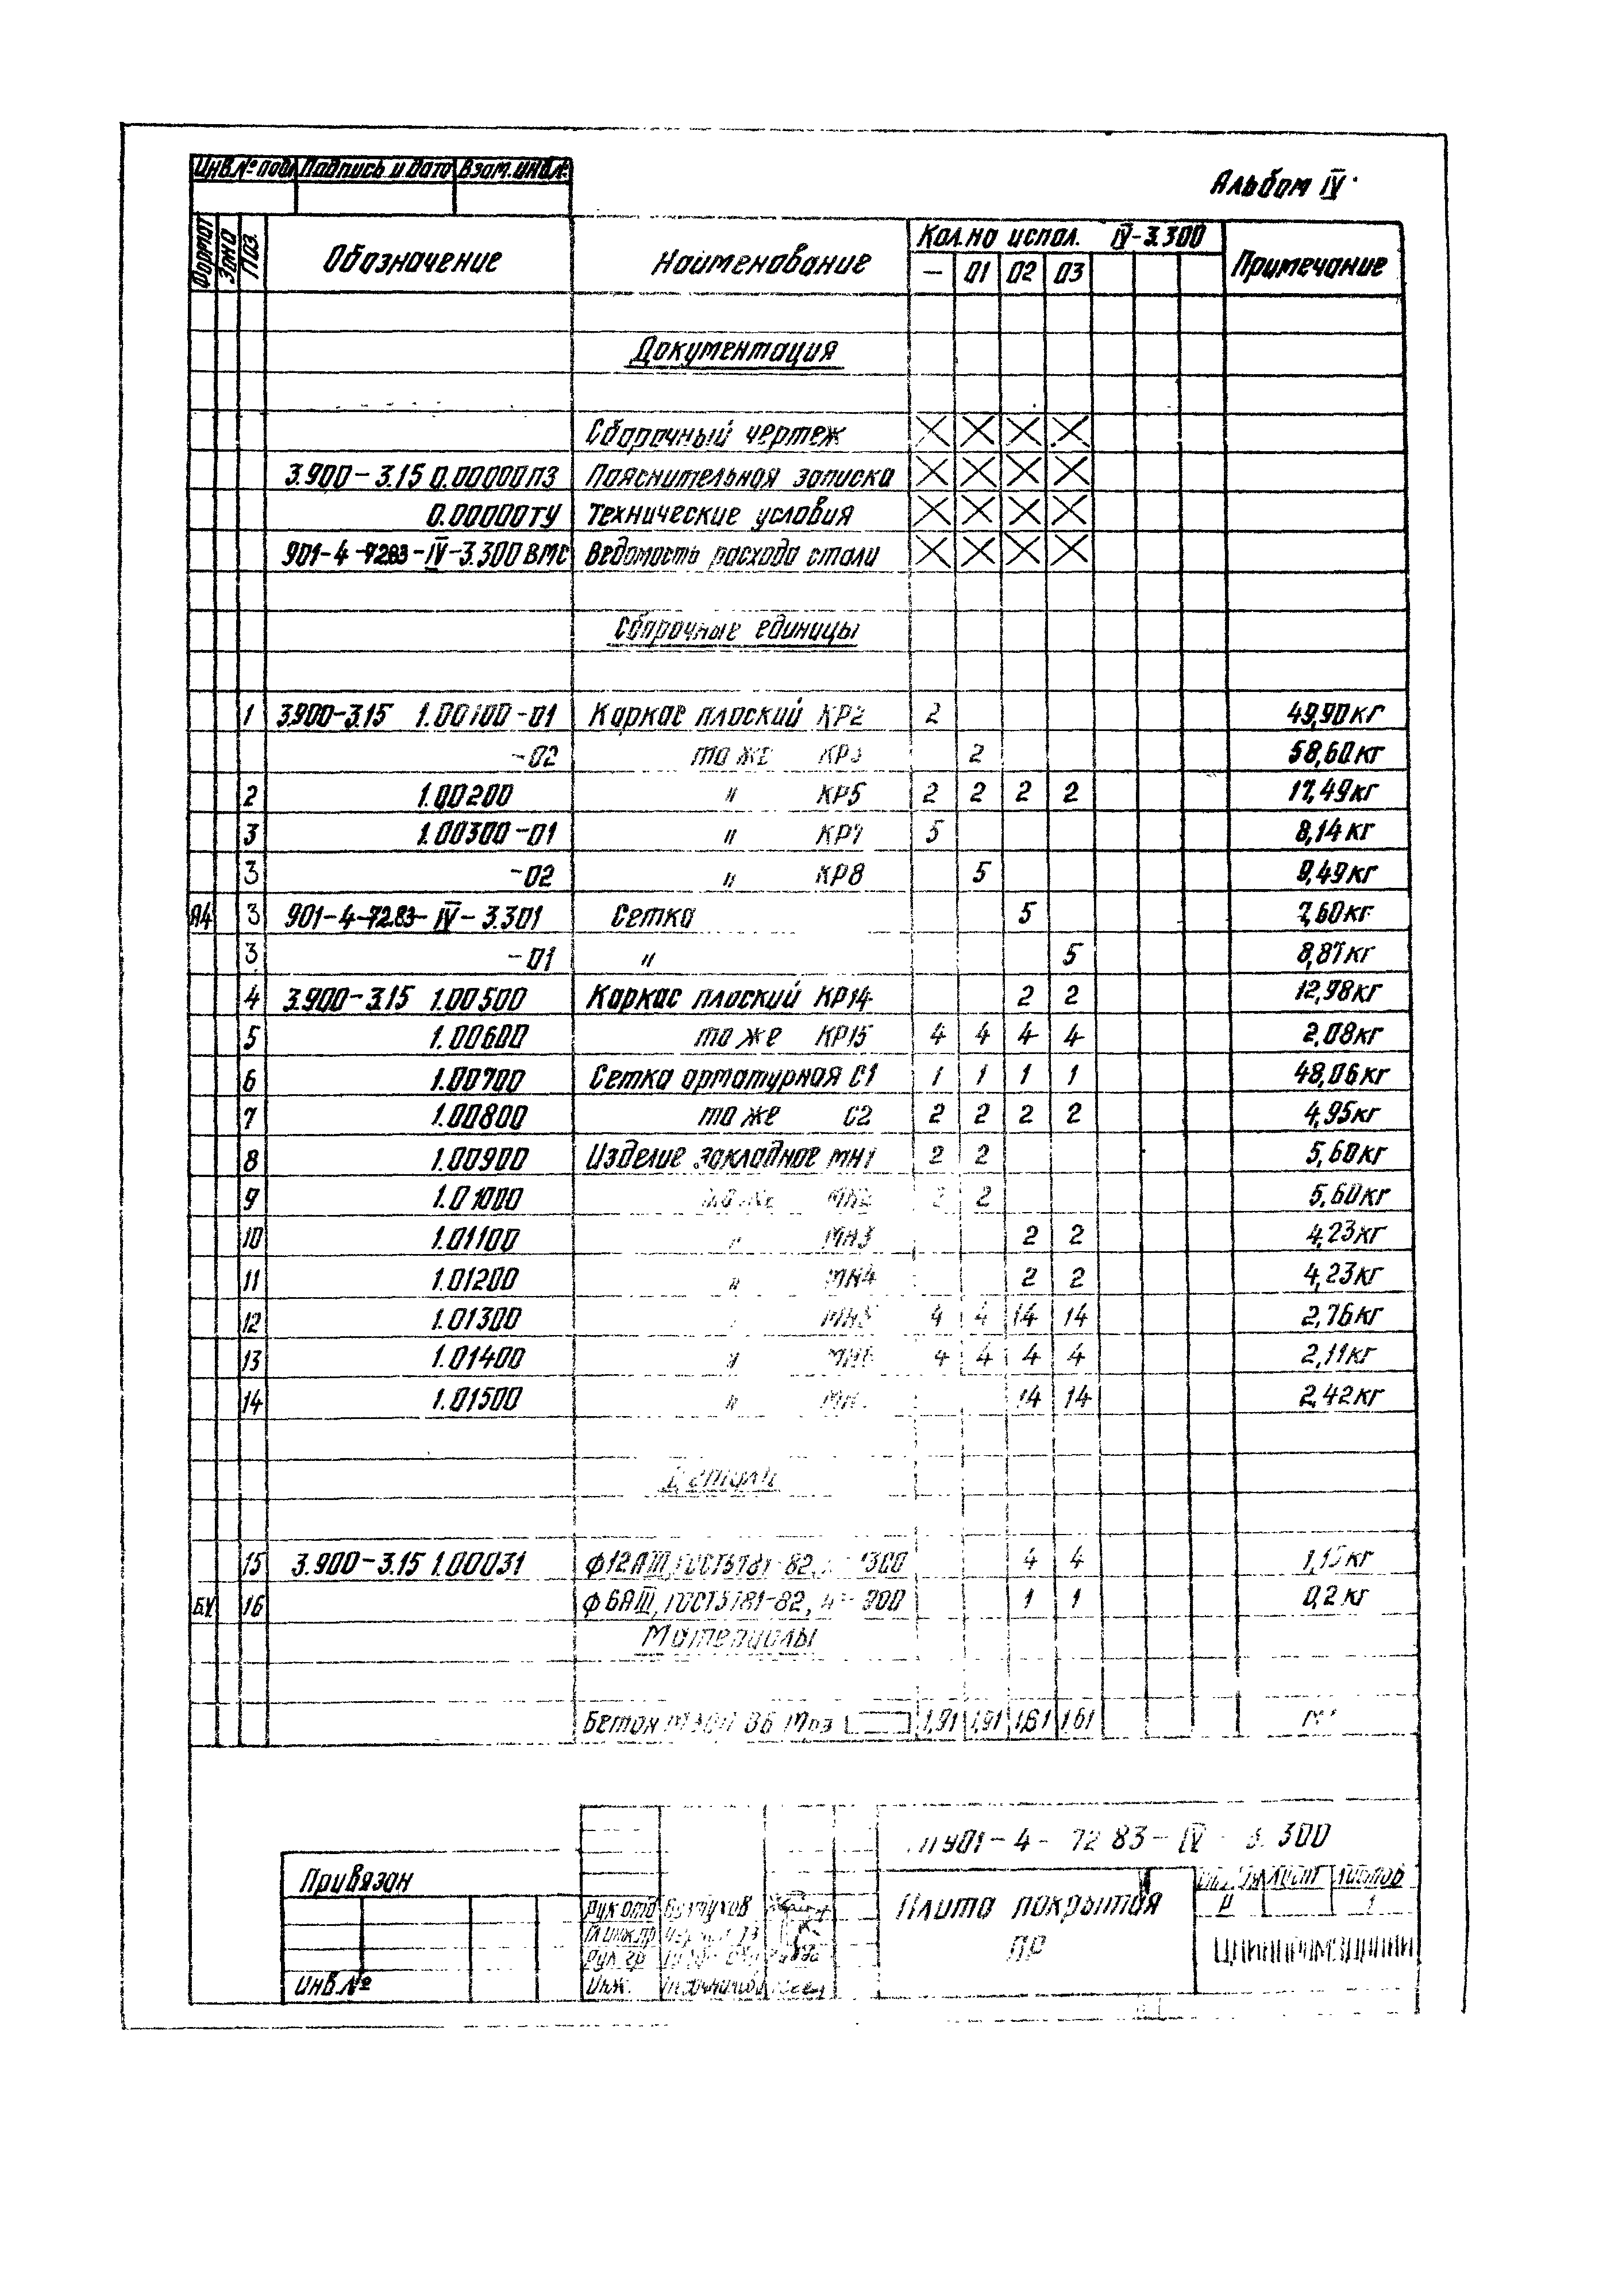 Инв.№ под. Подпись и дата Взам.инв.№
Альбом IV
Формат Зона Поз. Обозначение Наименование Кол.на испол. IV-3.300 Примечание
— 01 02 03
Документация
Сборочный чертеж
3.900-3.15 0.00000ПЗ Пояснительная записка
0.00000ТУ Технические условия
901-4-72.83-IV-3.300 ВМС Ведомость расхода стали
Сборочные единицы
1 3.900-3.15 1.00100-01 Каркас плоский КР2 2 49,90кг
-02 то же КР3 2 58,60кг
2 1.00200 " КР5 2 2 2 2 17,49кг
3 1.00300-01 " КР7 5 8,14кг
3 -02 " КР8 5 9,49кг
А4 3 901-4-72.83-IV-3.301 Сетка 5 7,60кг
3 -01 " 5 8,87кг
4 3.900-3.15 1.00500 Каркас плоский КР14 2 2 12,98кг
5 1.00600 то же КР15 4 4 4 4 2,08кг
6 1.00700 Сетка арматурная С1 1 1 1 1 48,06кг
7 1.00800 то же С2 2 2 2 2 4,95кг
8 1.00900 Изделие закладное МН1 2 2 5,60кг
9 1.01000 то же МН2 2 2 5,60кг
10 1.01100 " МН3 2 2 4,23кг
11 1.01200 " МН4 2 2 4,23кг
12 1.01300 МН5 4 4 14 14 2,76кг
13 1.01400 " МН6 4 4 4 4 2,11кг
14 1.01500 " МН 14 14 2,42кг
Детали
15 3.900-3.15 1.00031 ф12АIII, ГОСТ5781-82, 4 4 1,15кг
БЧ 16 ф6АIII, ГОСТ5781-82, 900 1 1 0,2кг
Материалы
Бетон М300 В6 Мрз 1,91 1,91 1,61 1,61
901-4-72.83-IV-3.300
Привязан
Лист Листов
Р 1
Плита покрытия
ПР
Рук.отд.
Гл.инж.пр
Рук.гр.
Инж.
Инв.№
ЦНИИпромзданий